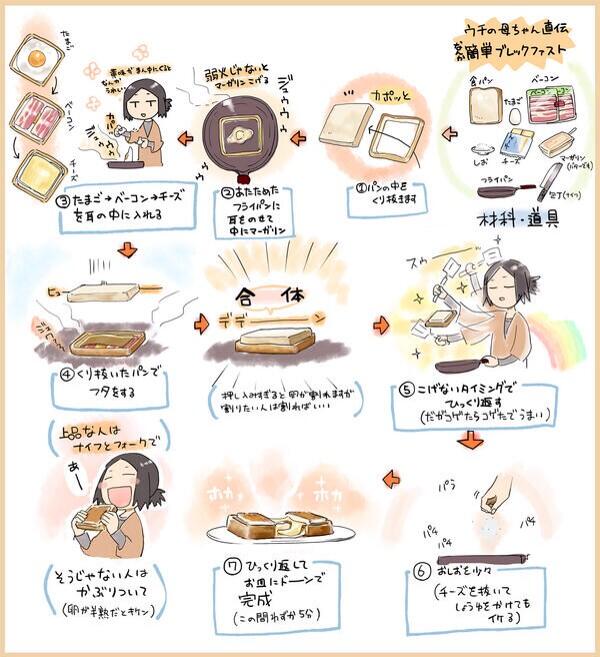 ウチの母ちゃん直伝
超簡単ブレックファスト
食パン
たまご
ベーコン
ベーコン
しお
チーズ
マーガリン
(バターでも可)
フライパン
包丁(ナイフ)
材料・道具
カポッと
①パンの中を
くり抜きます
弱火じゃないと
マーガリンこげる
ジュウウウ
ウゥ
②あたためた
フライパンに
耳をのせて
中にマーガリン
黄味がまん中にくると
なんか
うれしい
カパ
たまご
ベーコン
チーズ
③たまご→ベーコン→チーズ
を耳の中に入れる
ヒュー
ジュウ
④くり抜いたパンで
フタをする
合体
デデーーーン
押し込みすぎると卵が割れますが
割りたい人は割ればいい
スゥー
⑤こげないタイミングで
ひっくり返す
(だがコゲたらコゲたでうまい)
パラ
パチ
パチ
パチ
⑥おしおを少々
(チーズを抜いて
しょうゆをかけても
イケる)
ホカ
ホカ
⑦ひっくり返して
お皿にドーンで
完成
(この間わずか5分)
上品な人は
ナイフとフォークで
あー
そうじゃない人は
かぶりついて
(卵が半熟だとキケン)